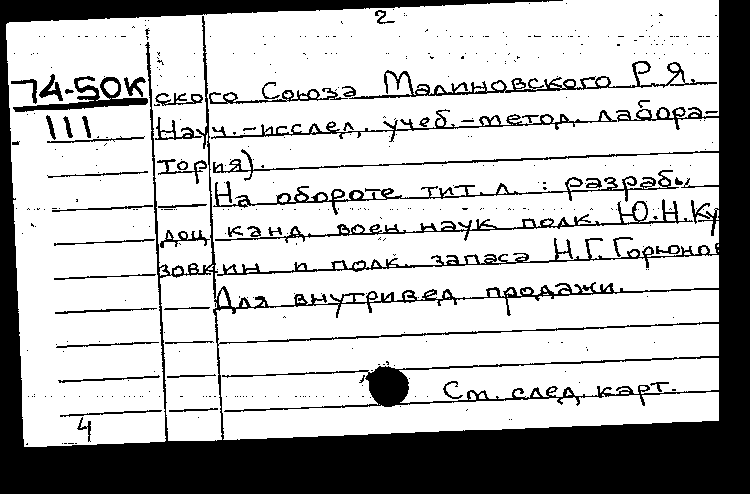 2
74-50К ского Союза Малиновского Р.Я.
111 Науч.-исслед. учеб.-метод. лабора=
тория).
На обороте тит. л. : разраб.
доц. канд. воен. наук полк. Ю.Н.Ку
зовкин и полк. запаса Н.Г.Горюнов
Для внутривед. продажи.
См. след. карт.
4